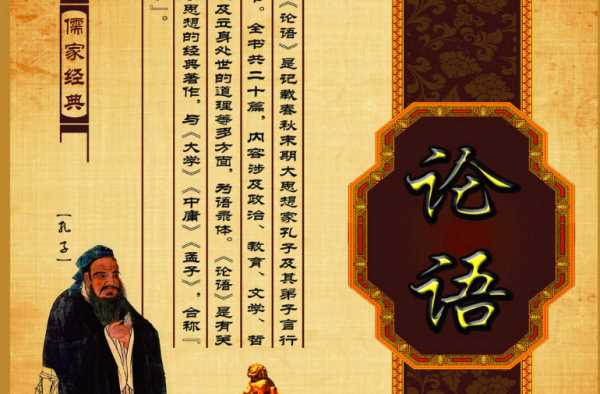 论语
《论语》是记载春秋末期大思想家孔子及其弟子言行
。全书共二十篇，内容涉及政治、教育、文学、哲
及立身处世的道理等多方面，为语录体。《论语》是有关
思想的经典著作，与《大学》《中庸》《孟子》，合称『
』。
儒家经典
[孔子]